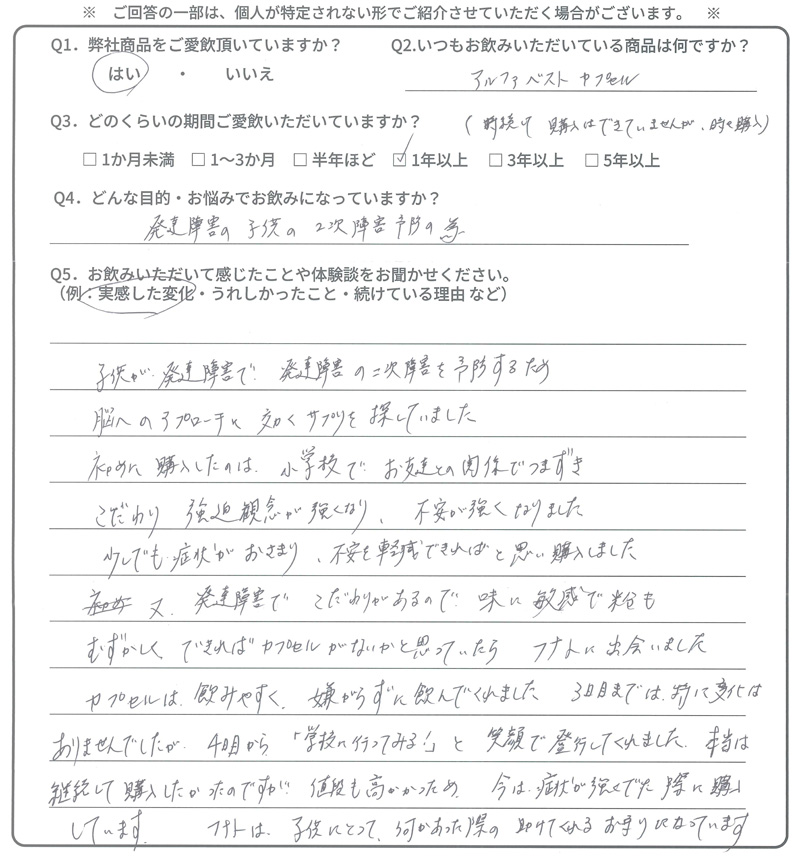 ※ ご回答の一部は、個人が特定されない形でご紹介させていただく場合がございます。 ※
Q1. 弊社商品をご愛飲頂いていますか？ Q2.いつもお飲みいただいている商品は何ですか？
はい ・ いいえ アルファベスト カプセル
Q3. どのくらいの期間ご愛飲いただいていますか？ (持続して購入はできていませんが、時々購入)
□ 1か月未満 □ 1〜3か月 □ 半年ほど ☑ 1年以上 □ 3年以上 □ 5年以上
Q4. どんな目的・お悩みでお飲みになっていますか？
発達障害の子供の2次障害予防の為
Q5. お飲みいただいて感じたことや体験談をお聞かせください。
（例：実感した変化・うれしかったこと・続けている理由 など）
子供が発達障害で 発達障害の二次障害を予防するため
脳へのアプローチに効くサプリを探していました
初めに購入したのは、小学校でお友達との関係でつまずき
こだわり 強迫観念が強くなり、不安が強くなりました
少しでも症状がおさまり、不安を軽減できればと思い購入しました
又、発達障害でこだわりがあるので味に敏感で粉も
むずかしく、できればカプセルがないかと思っていたら フナトに出会いました
カプセルは、飲みやすく、嫌がらずに飲んでくれました 3日目までは、特に変化は
ありませんでしたが、4日目から「学校に行ってみる!」と笑顔で登行してくれました。本当は
継続して購入したかったのですが 値段も高かったため、今は、症状が強くでた際に購入
しています。 フナトは、子供にとって、何かあった際の助けてくれるお守りになっています